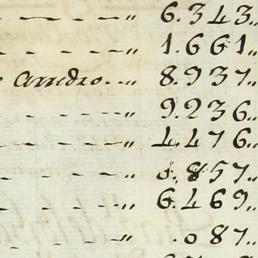 — — — — „ 6.343„
— — — „ 1.661„
arredo. — „ 8.937„
— — — — „ 9.236„
— — — — „ 4.476„
— — — — „ 0.857„
— — — — „ 6.469„
— — — — „ .087„